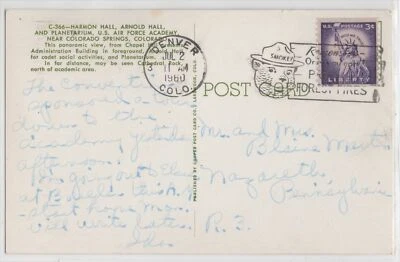 C-366—HARMON HALL, ARNOLD HALL,
AND PLANETARIUM, U.S. AIR FORCE ACADEMY,
NEAR COLORADO SPRINGS, COLORADO
This panoramic view, from Chapel
Administration Building in foreground,
for cadet social activities, and Planetarium. In
far distance, may be seen Cathedral Rock,
north of academic area.
DENVER
JUL 2
11 AM
1960
COLO.
SMOKEY
FOREST FIRES
U.S. POSTAGE 3¢
LIBERTY
POST CARD
The Convention
sponsored a tour
down to the
academy yesterday
afternoon.
I'm going out to
at
start home
will write later.
Mr. and Mrs.
Blaine
Nazareth
Pennsylvania
R. 3.